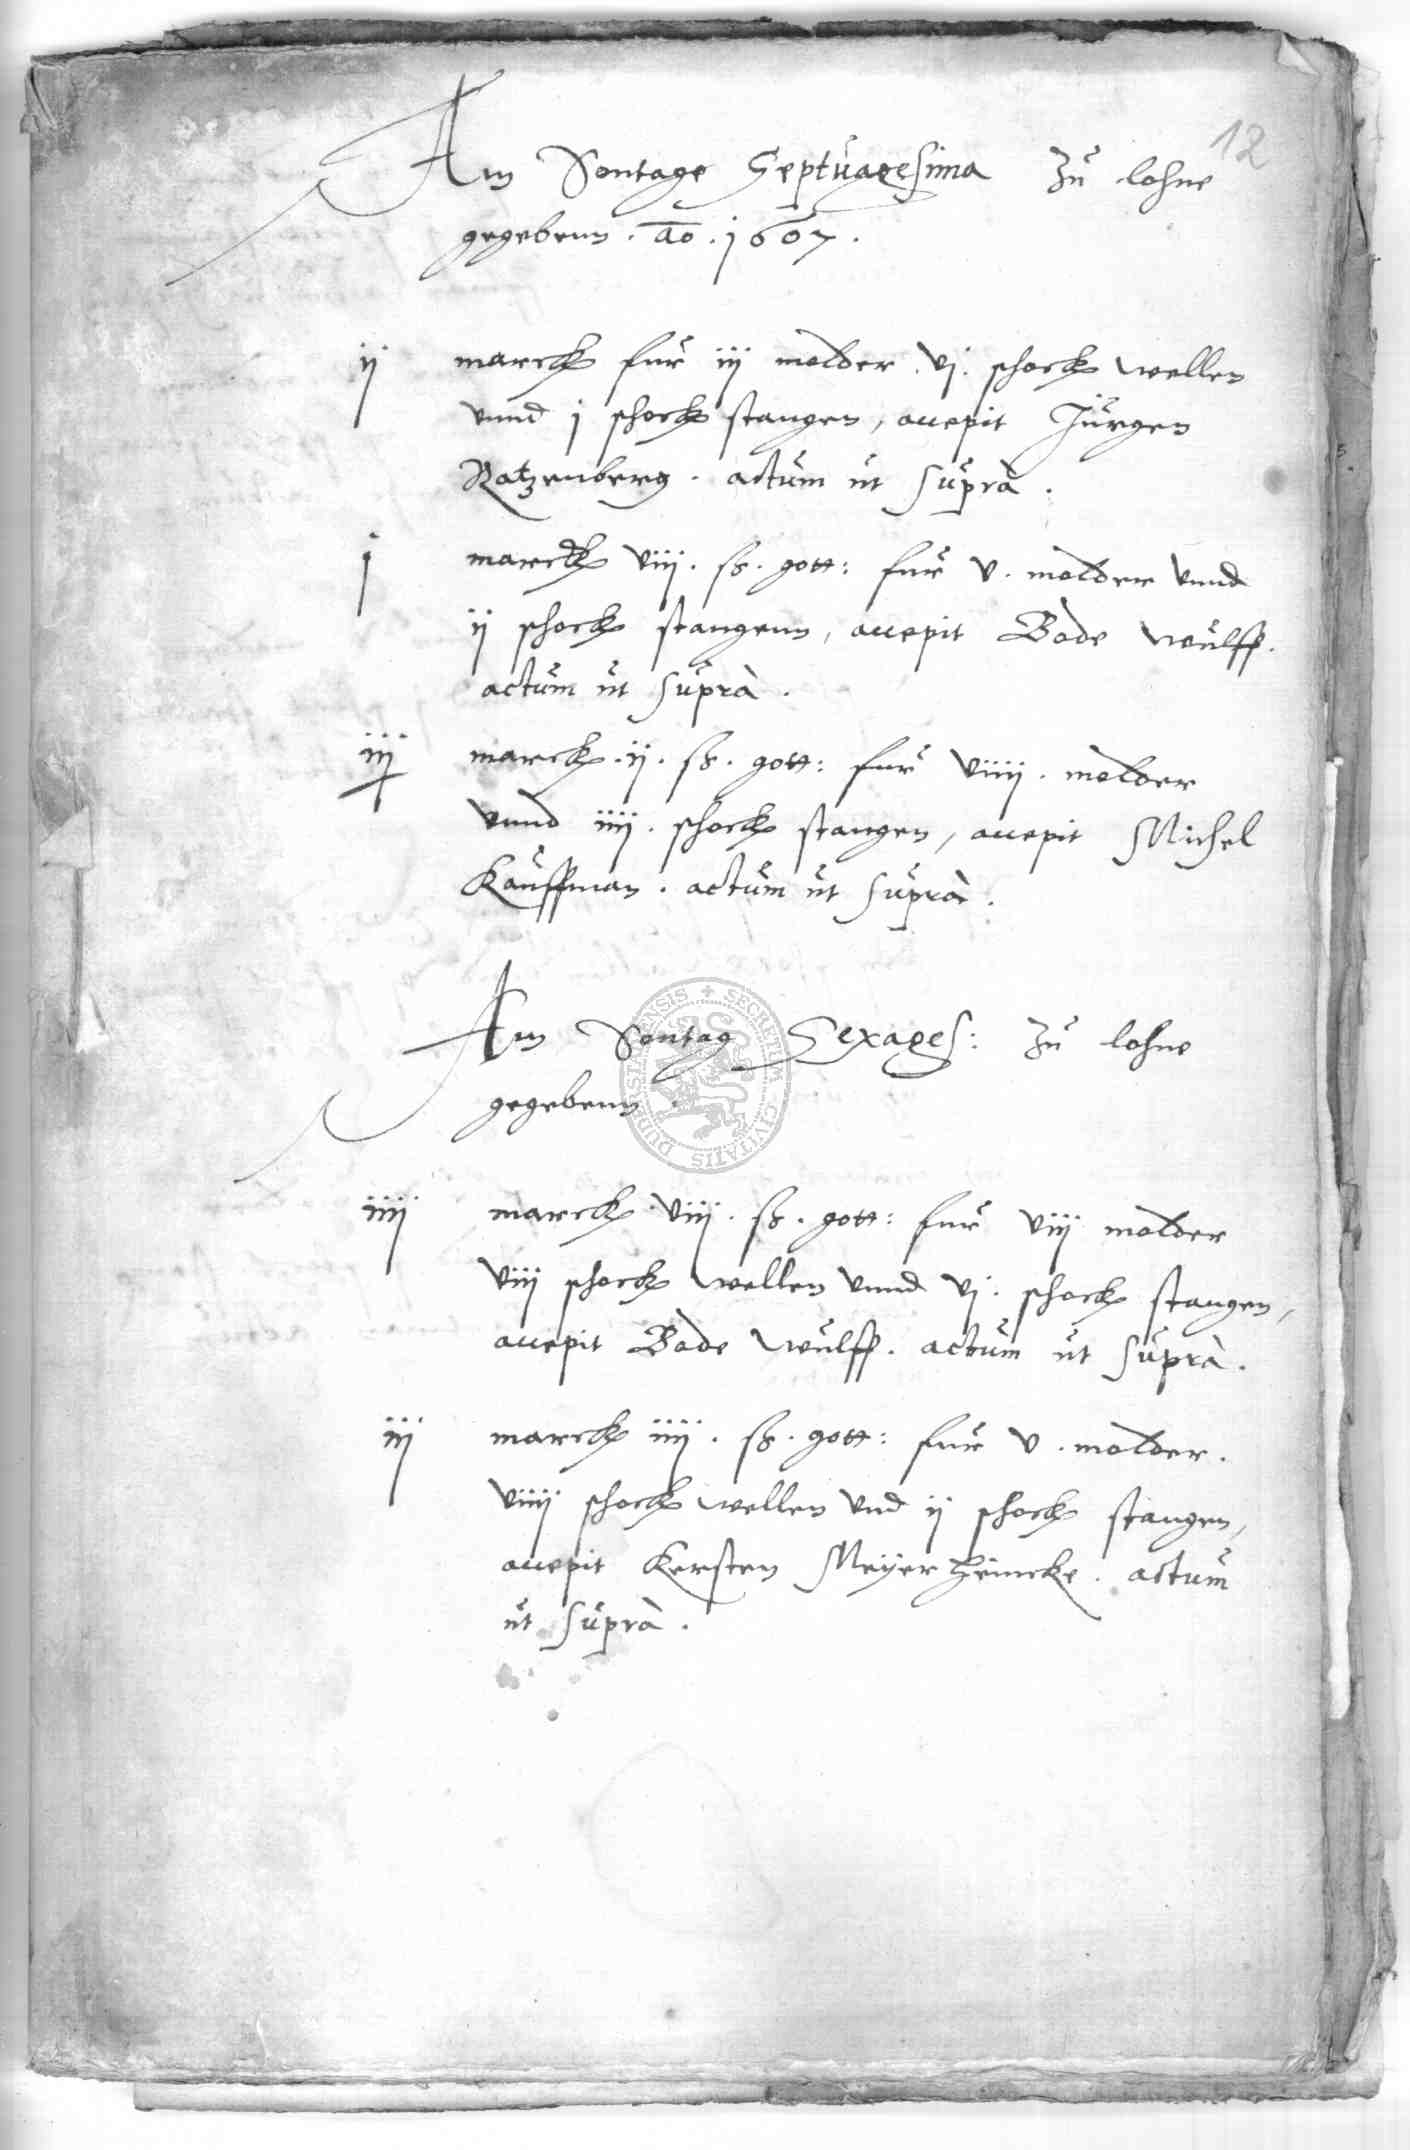 12
Am Sontage Septuagesima zu lohne
gegebenn . ao . 1607 .
ij marck fur iij molder . vj . schock wellen
vnnd j schock stangen, accepit Jurgen
Katzenberg . actum ut suprà .
j marck viij . ß . gott: fur v . molder vnnd
ij schock stangenn, accepit Bode Wulff .
actum ut suprà .
iij marck . ij . ß . gott: fur viiij . molder
vnnd iiij . schock stangen, accepit Michel
Kauffman . actum ut suprà .
Am Sontag Sexages: zu lohne
gegebenn
iiij marck viij . ß . gott: fur viij molder
viij schock wellen vnnd vj . schock stangen,
accepit Bode Wulff . actum ut suprà .
iij marck iiij . ß . gott: fur v . molder .
viiij schock wellen vnd ij schock stangen,
accepit Kersten Meÿer heincke . actum
ut suprà .
SECRETUM CIVITATIS